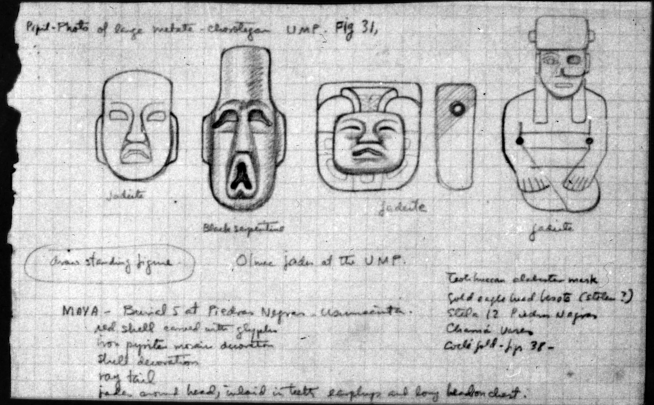 Pipil-Photo of large metate - Chorotegan UMP. Fig 31,
Jadeite
Black serpentine
Jadeite
jadeite
draw standing figure
Olmec jades at the UMP.
Teotihuacan alabaster mask
Gold eagle head labrets (stolen?)
Stela 12 Piedras Negras
Chamá vases
Coclé gold - figs 38 -
MAYA - Burial 5 at Piedras Negras - Usumacinta.
red shell carved with glyphs
Iron pyrites mosaic decoration
Shell decoration
ray tail
jades around head, inlaid in teeth earplugs and long bead on chest.